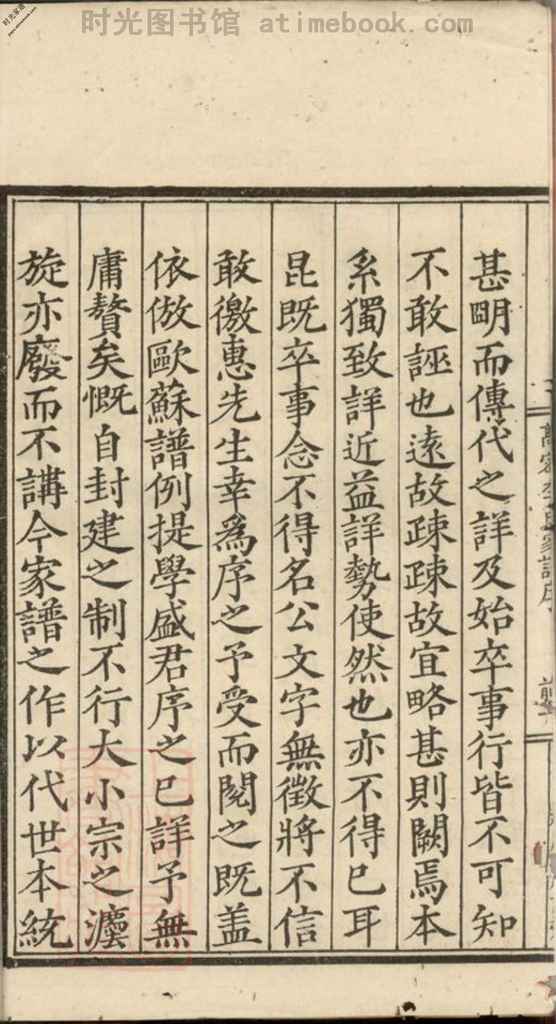 时光图书馆 atimebook.com
甚明而傳代之詳及始卒事行皆不可知
不敢誣也遠故疎疎故宜略甚則闕焉本
系獨致詳近益詳勢使然也亦不得已耳
昆既卒事念不得名公文字無徵將不信
敢徼惠先生幸爲序之予受而閱之既盖
依倣歐蘇譜例提學盛君序之已詳予無
庸贅矣慨自封建之制不行大小宗之灋
旋亦廢而不講今家譜之作以代世本統